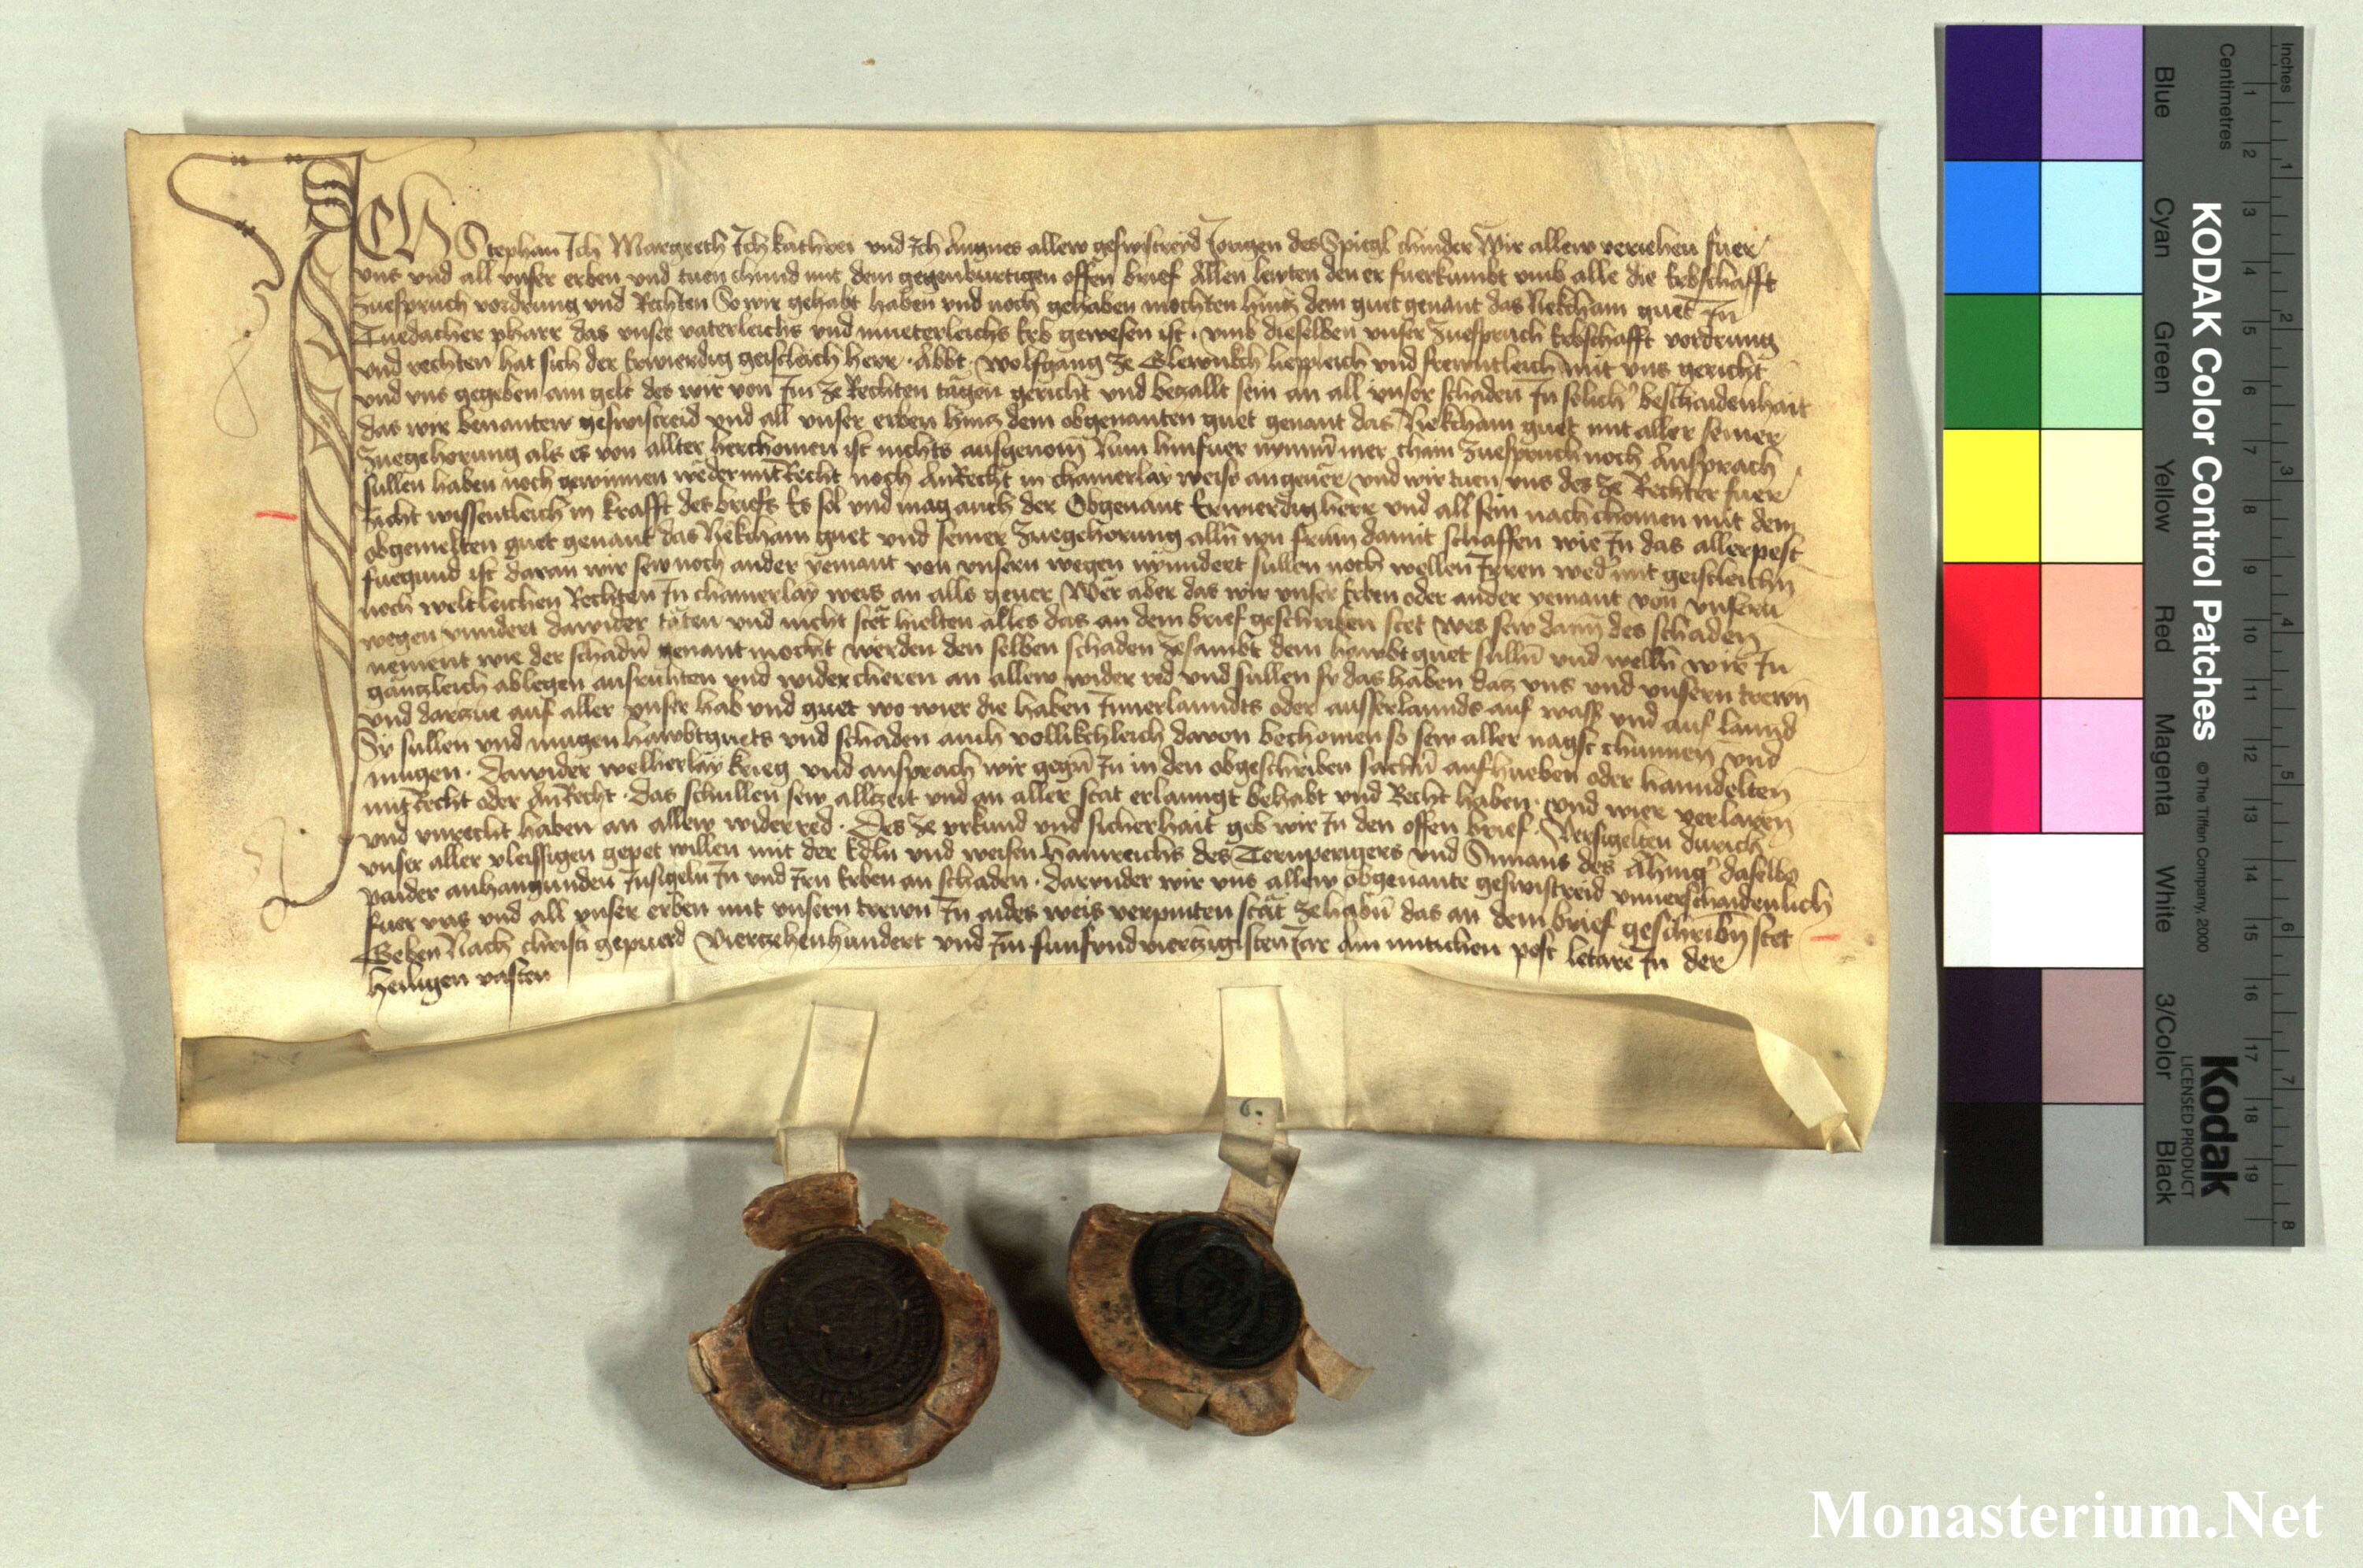 Ich Stephan Ich Margreth Ich kathrei und Ich Angnes allew geswistreid Jorigen des Spitzl chinder Wir allew veriehen fuer
uns und all unser erben und tuen chund mit dem gegenburtigen offen brief Allen lewten den er fuerkumbt umb alle die Erbschafft
Zuespruch vordrung und Rechten So wir gehabt haben und noch gehaben mochten hintz dem guet genant das guet In
pharr das unser vaterleichs und mueterleichs Erb gewesen ist · umb dieselben unser Zuespruch Erbschafft vordrung
und rechten hat sich der Erwierdig geistleich herr · Abbt · Wolfgang ze Glewnikch liepleich und frewntleich mit uns gericht
und uns gegeben ain gelt des wir von Im ze Rechten tagen gericht und bezallt sein an all unser schaden In solicher beschaidenhait
das wir benanten geswistreid und all unser erben hintz dem obgenanten guet genant das guet mit aller seiner
Zuegehorung als es von allter herchomen ist nichts ausgenom Nun hinfuer nymer mer chain Zuespruch noch Ansprach
sullen haben noch gewinnen weder mit Recht noch An Recht in chainerlay weiss angeuer und wir tuen uns des ze Rechter fuer
zicht wissentleich in krafft des briefs Es sol und mag auch der Obgenant Erwierdig herr und all sein nachchomen mit dem
obgemelten guet genant das guet und seiner Zuegehorung allen iren frum damit schaffen wie In das allerpest
fuegund ist daran wir sew noch ander yemant von unsern wegen nyndert sullen noch wellen Irren weder mit geistleichen
noch weltleichen Rechten In chainerlay weis an alls geuer Wer aber das wir unser Erben oder ander yemant von unsern
wegen yndert dawider taten und nicht stet hielten alles das an dem brief geschriben stet wes sew dann des schaden
nement wie der schaden genant mocht werden den selben schaden zesambt dem hawbtguet sullen und wellen wir In
gantzleich ablegen ausrichten und widercheren an allew wider red und sullen sy das haben datz uns und unsern trewn
und dartzue auf aller unser hab und guet wo wier die haben Innerlanndts oder ausserlannds auf wasser und auf lannd
Sy sullen und mugen hawbtguets und schaden auch vollikchleich davon bechomen so sew aller nagst chunnen und
mugen · Dawider welherlay krieg und ansprach wir gegen In in den obgeschriben sachen aufhueben oder hanndelten
mit Recht oder An Recht · das schullen sew allzeit und an aller stat erlanngt behabt und Recht haben · und wier verlaren
und unrecht haben an allew widerred · Des ze urkund und sicherhait geb wir In den offen brief · Versigelten durich
unser aller vleissigen gepet willen mit der Edeln und weisen Hainreichs des Ternpergers und Simans des daselbs
paider anhangunden Insigeln In und Irn Erben an schaden · darunder wir uns allew obgenante geswistreid unverschaidenlich
fuer uns und all unser erben mit unsern trewn In aides weis verpinten stät zehaben das an dem brief geschriben stet
Geben Nach christi gepuerd Viertzehenhundert und Im funfundviertzigisten Jare Am mitichen post letare In der
heiligen vasten
6.
KODAK Color Control Patches © The Tiffen Company, 2000
Kodak
LICENSED PRODUCT
Inches
Centimetres
1 2 3 4 5 6 7 8
1 2 3 4 5 6 7 8 9 10 11 12 13 14 15 16 17 18 19
Blue Cyan Green Yellow Red Magenta White 3/Color Black
Monasterium.Net